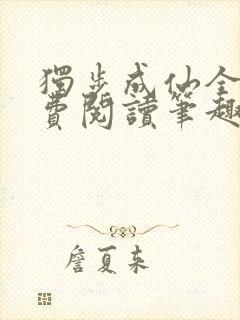 獨步成仙全
費閱讀筆趣
詹夏來